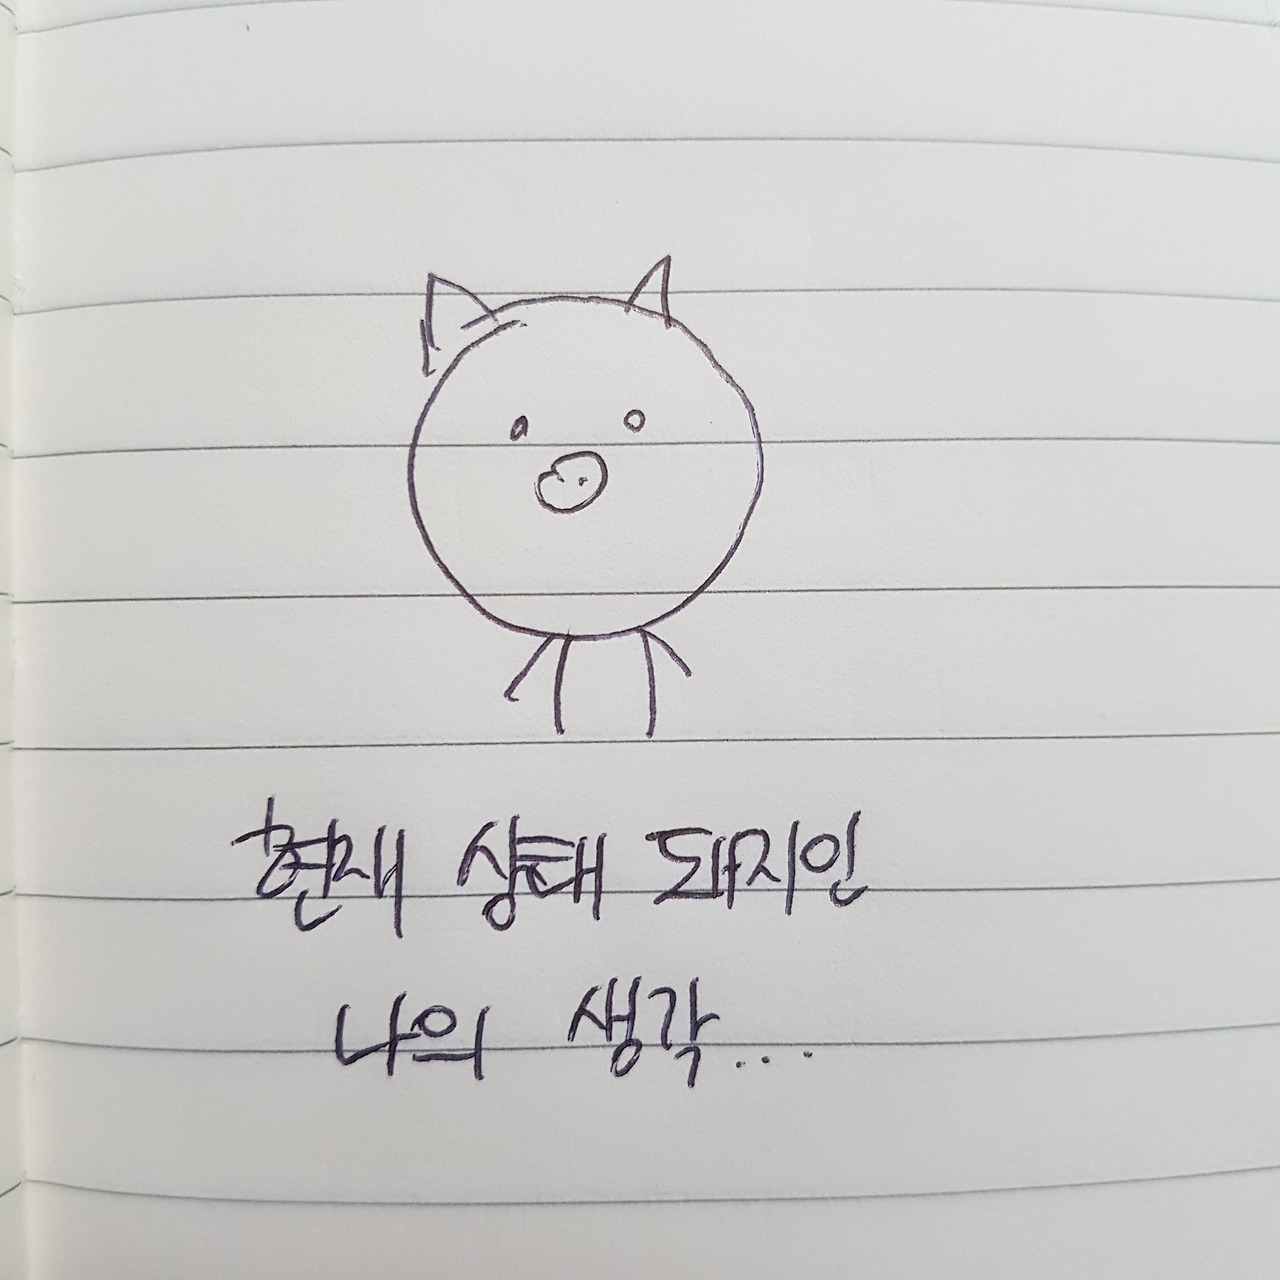 현재 상태 돼지인
나의 생각...